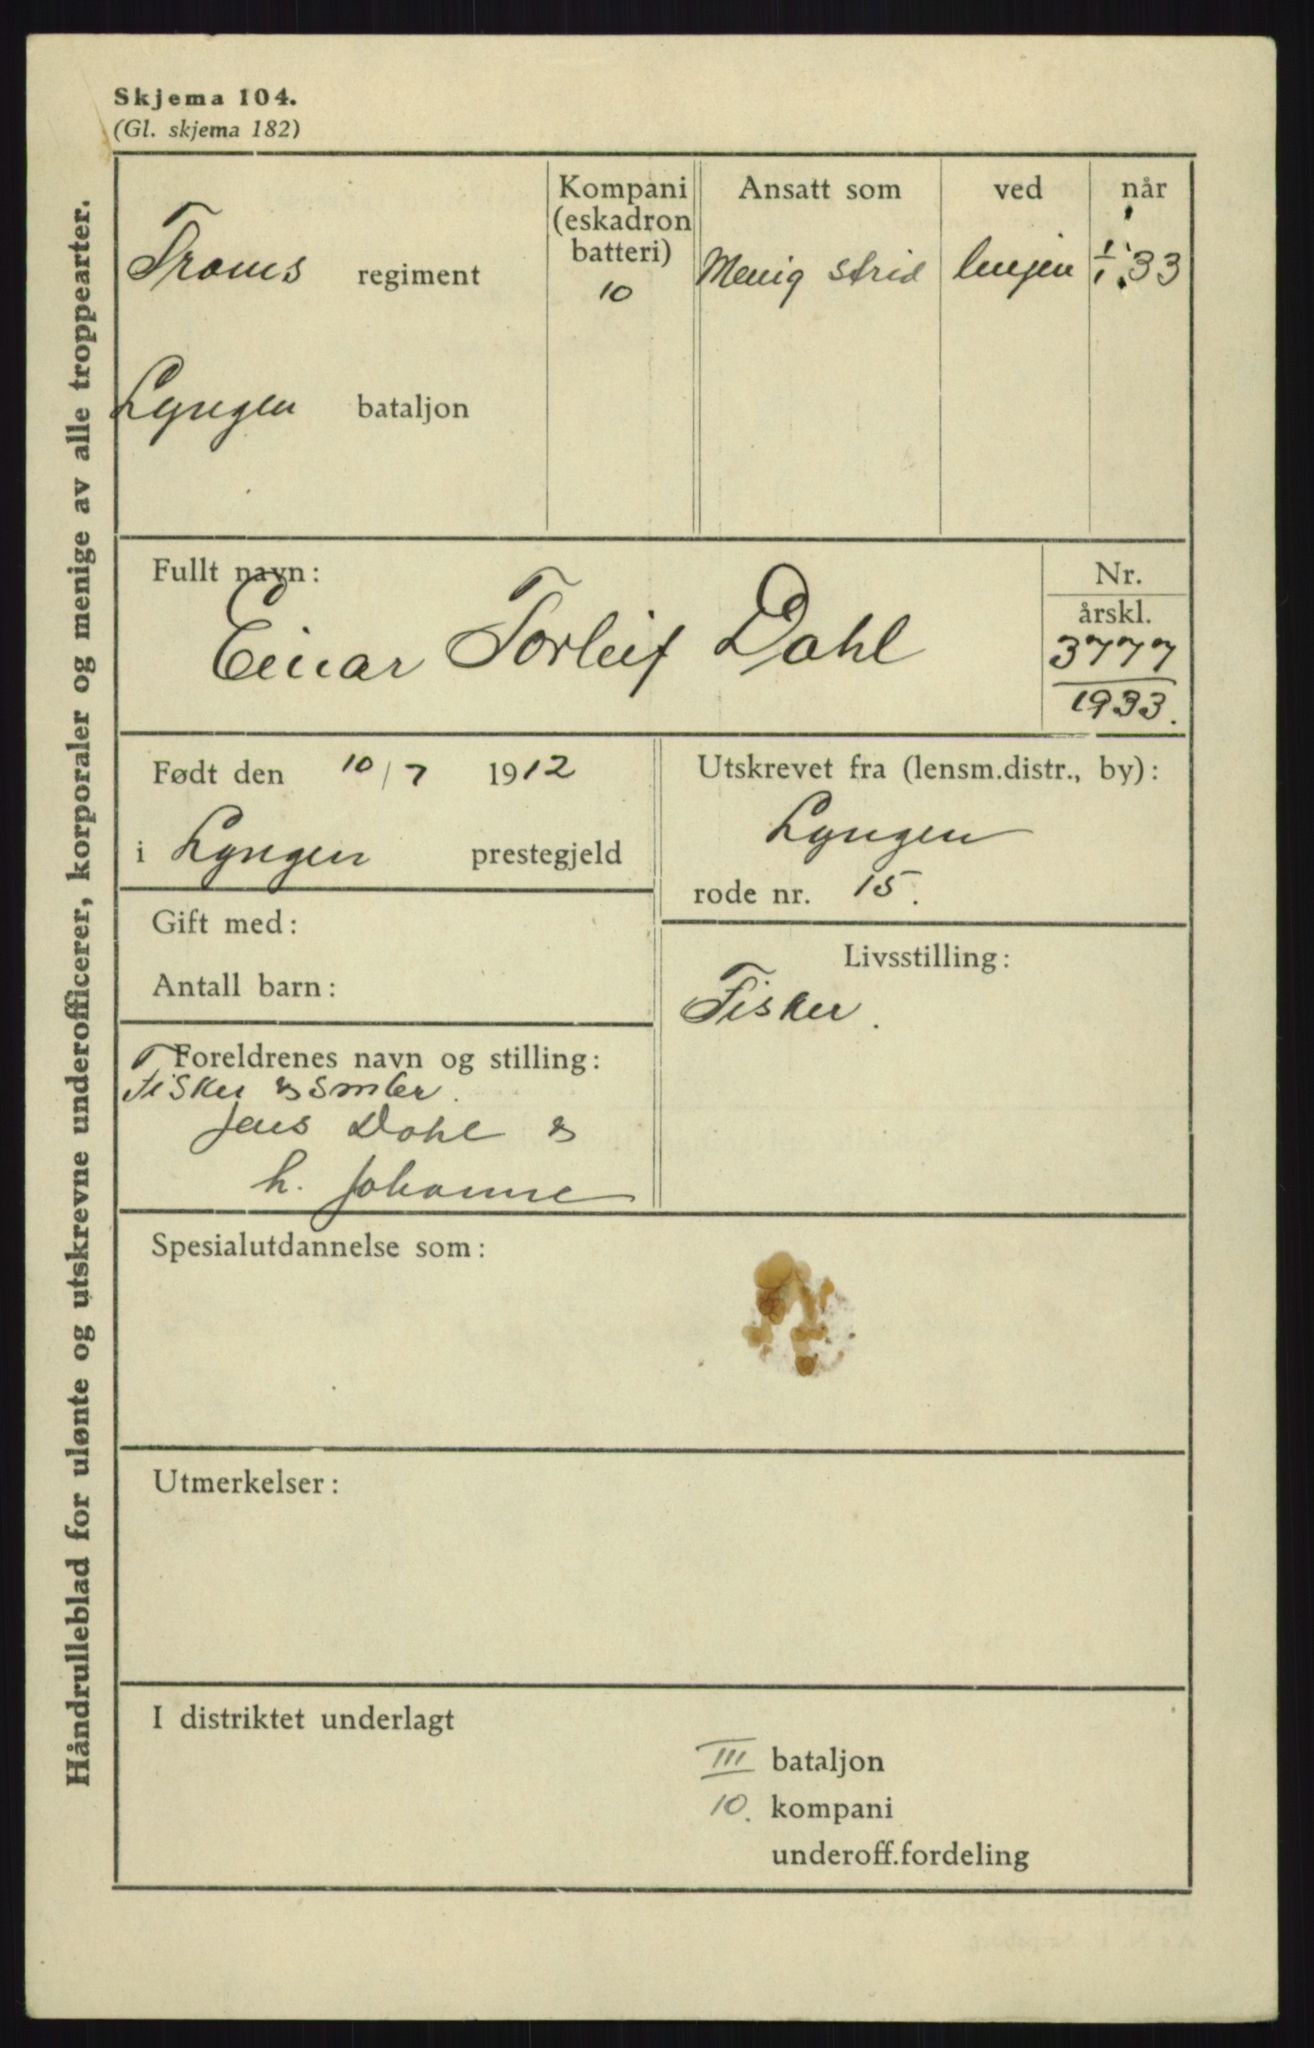 Skjema 104.
(Gl. skjema 182)
Håndrulleblad for ulønte og utskrevne underofficerer, korporaler og menige av alle troppearter.
Troms regiment
Lyngen bataljon
Kompani
(eskadron
batteri)
10
Ansatt som
Menig strid
ved
linjen
når
1/1 33
Fullt navn:
Einar Torleif Dahl
Nr.
årskl.
3777
1933.
Født den 10/7 1912
i Lyngen prestegjeld
Utskrevet fra (lensm.distr., by):
Lyngen
rode nr. 15.
Gift med:
Antall barn:
Livsstilling:
Fisker.
Foreldrenes navn og stilling:
Fisker & småbr.
Jens Dahl &
h. Johanne
Spesialutdannelse som:
Utmerkelser:
I distriktet underlagt
III bataljon
10. kompani
underoff.fordeling